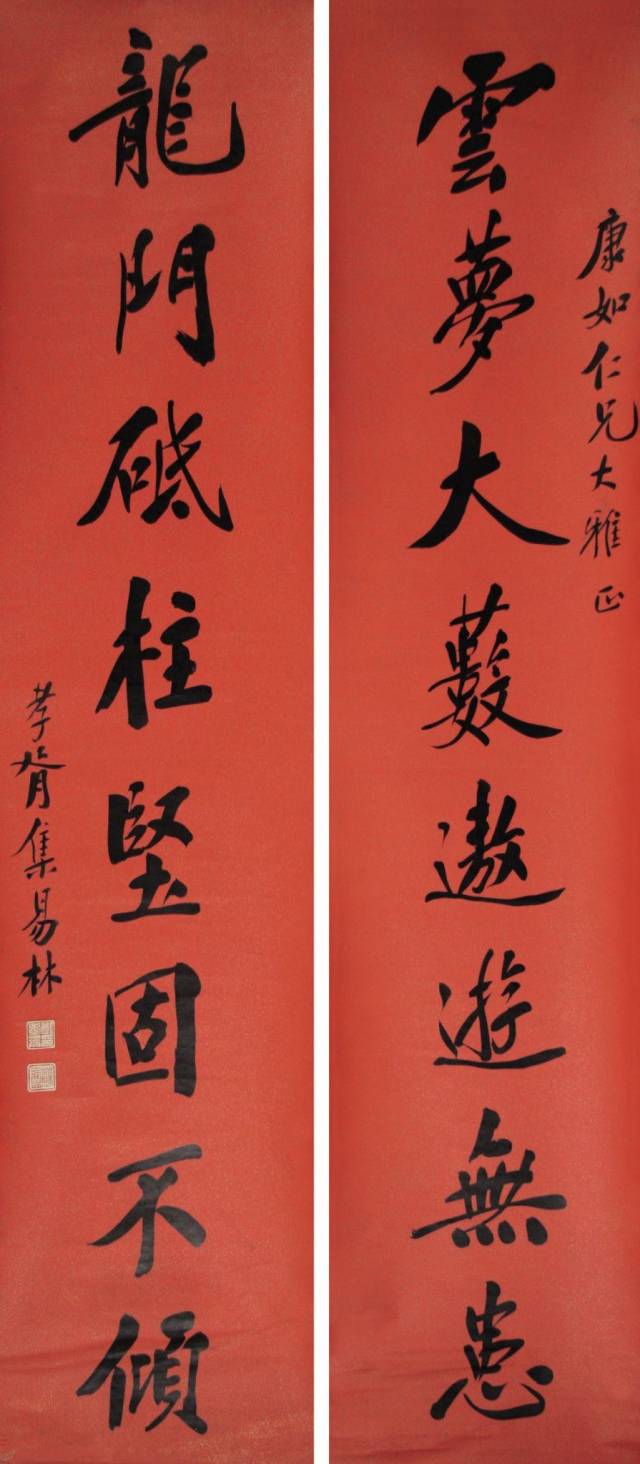 康如仁兄大雅正
雲夢大藪遨遊無患
龍門砥柱堅固不傾
孝胥集易林